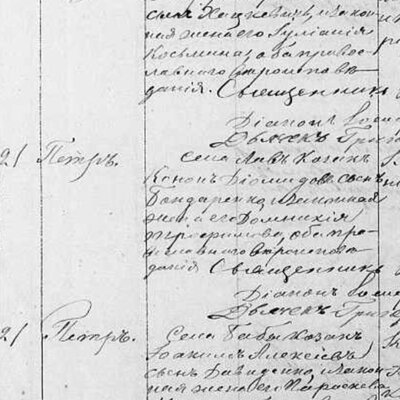 сынъ и закон
ная жена его Іуліанія
Косьмина, оба право
славнаго вѣроисповѣ
данія. Священникъ
Діаконъ
Дьячекъ Григо
21 Петръ. села козакъ
Кононъ Діомидовъ сынъ
Бондаренко, и законная
жена его Домникія
Трофимова, оба пра
вославнаго вѣроисповѣ
данія Священникъ
Діаконъ
Дьячекъ Григо
21 Петръ. Села Бабы козакъ
Іоакимъ Алексіевъ
сынъ Давиденко, и закон
ная жена его Параскева